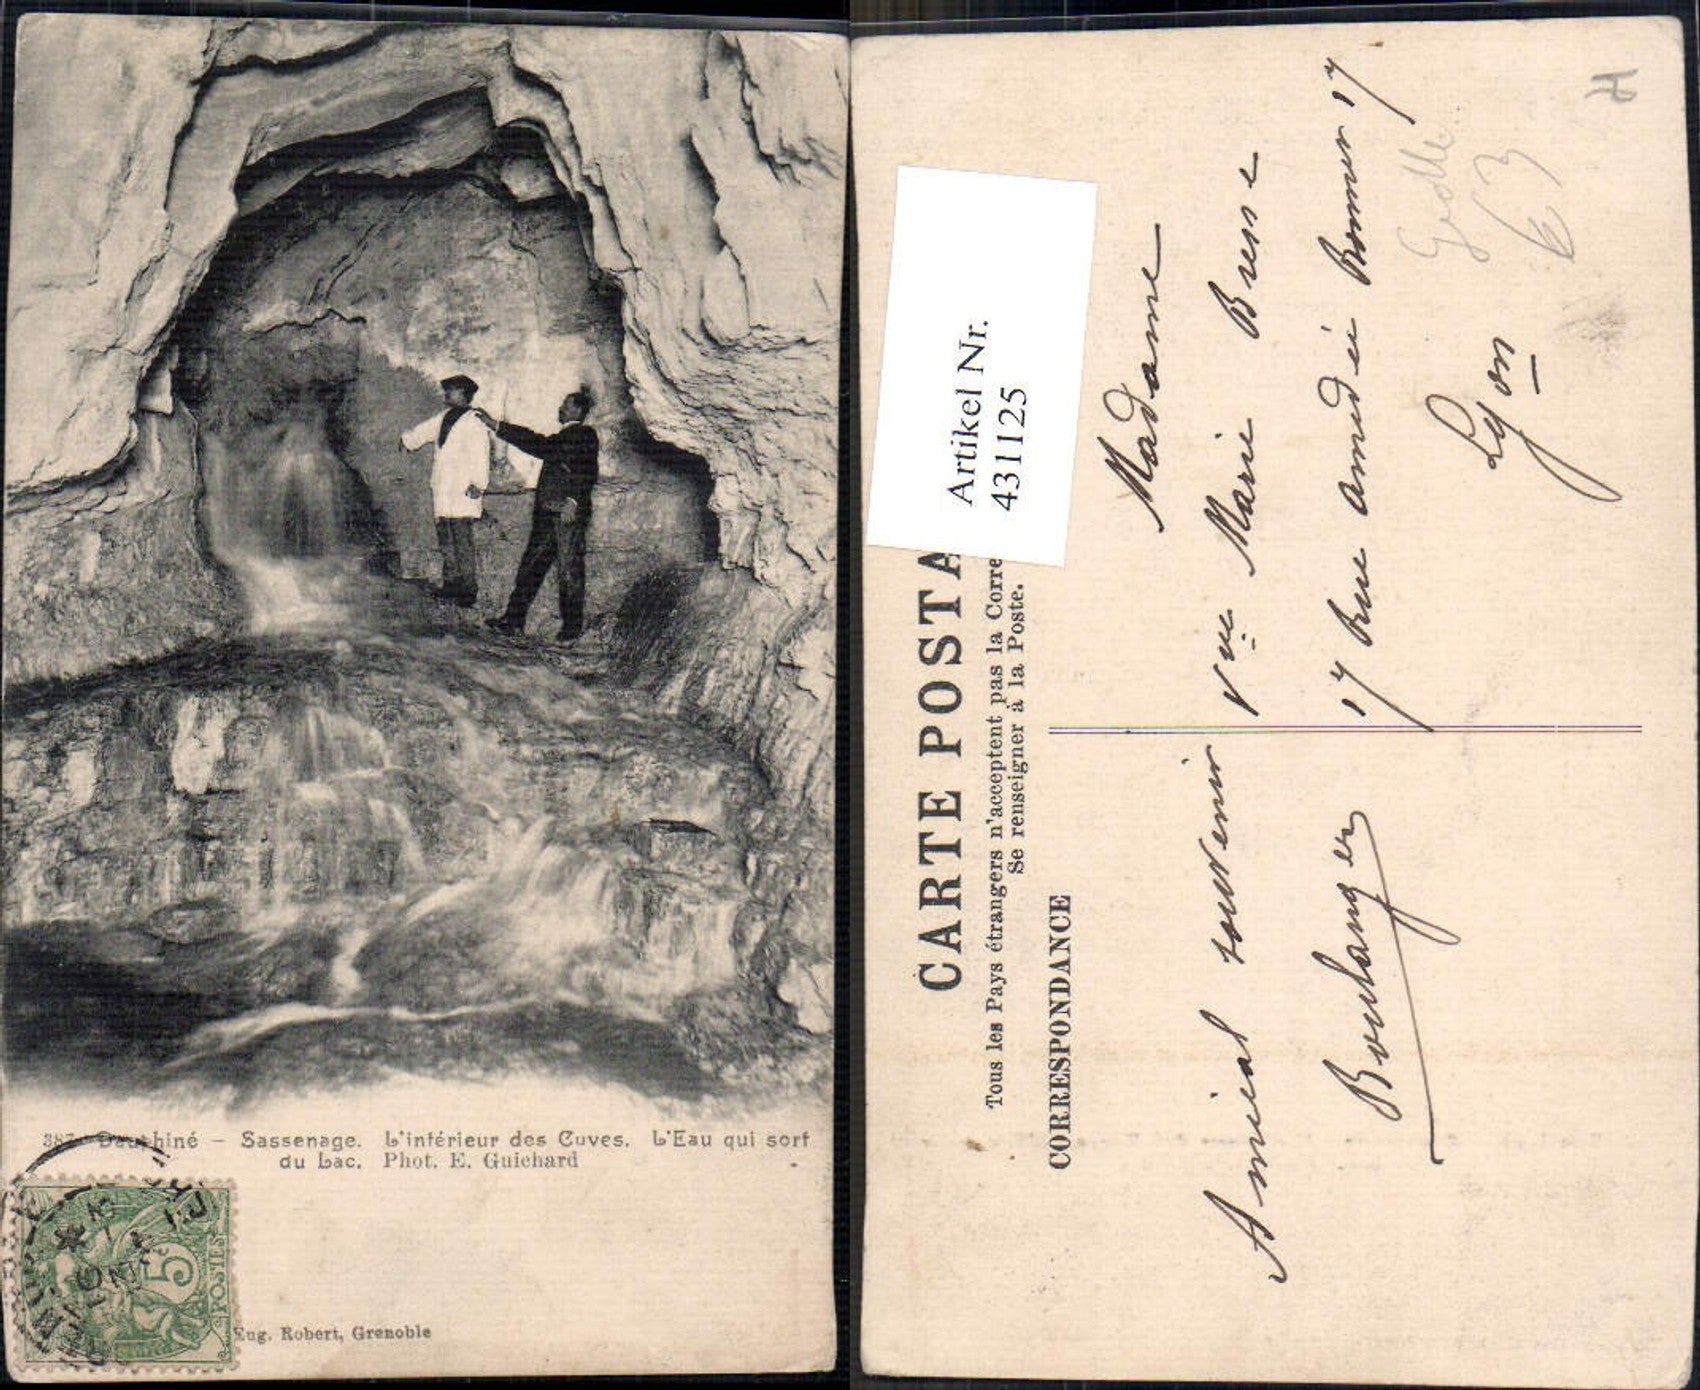 Dauphiné – Sassenage. L'intérieur des Cuves. L'Eau qui sort
du Lac. Phot. E. Guichard
5c
POSTES
Eug. Robert, Grenoble
Artikel Nr.
431125
CARTE POSTA
Tous les Pays étrangers n'acceptent pas la Corre
Se renseigner à la Poste.
CORRESPONDANCE
Amical souvenir
Boulanger
Madame
Vve Marie Besse
17 Rue amédée Bonnet 17
Lyon
63